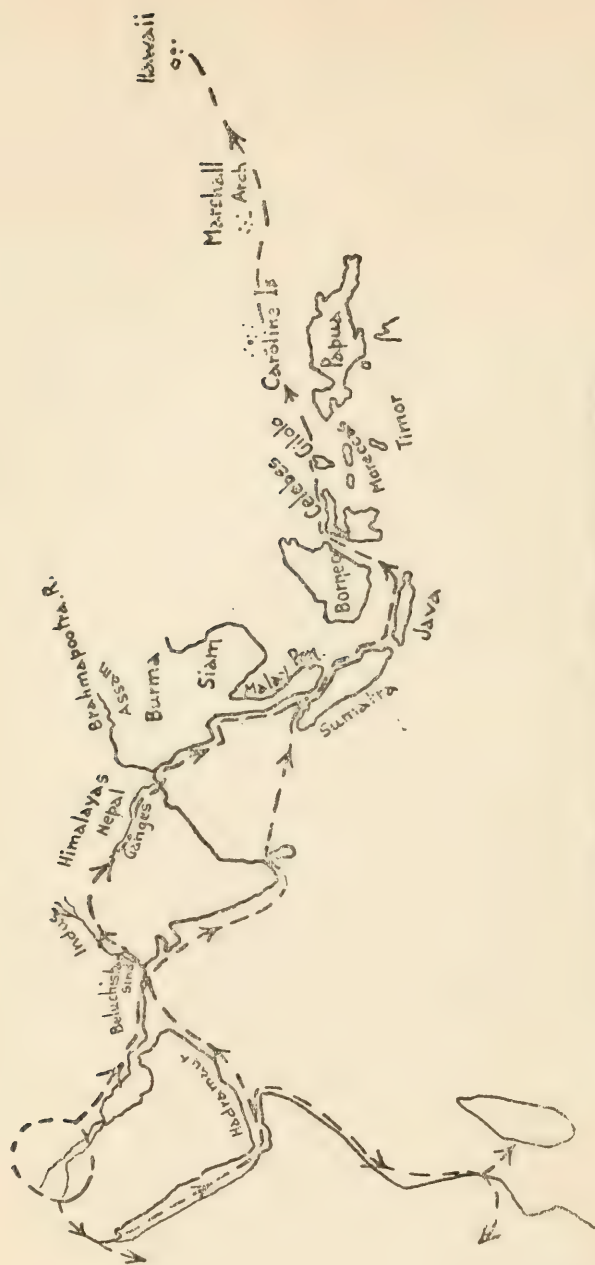 Hawaii
Marchall
Arch
Caroline Is
Papua
Gilolo
Celebes
Timor
Borneo
Java
Sumatra
Malay Pen.
Siam
Burma
Assam
Brahmapootra R.
Himalayas
Nepal
Ganges
Indus
Beluchist
Sind
Hadramaut